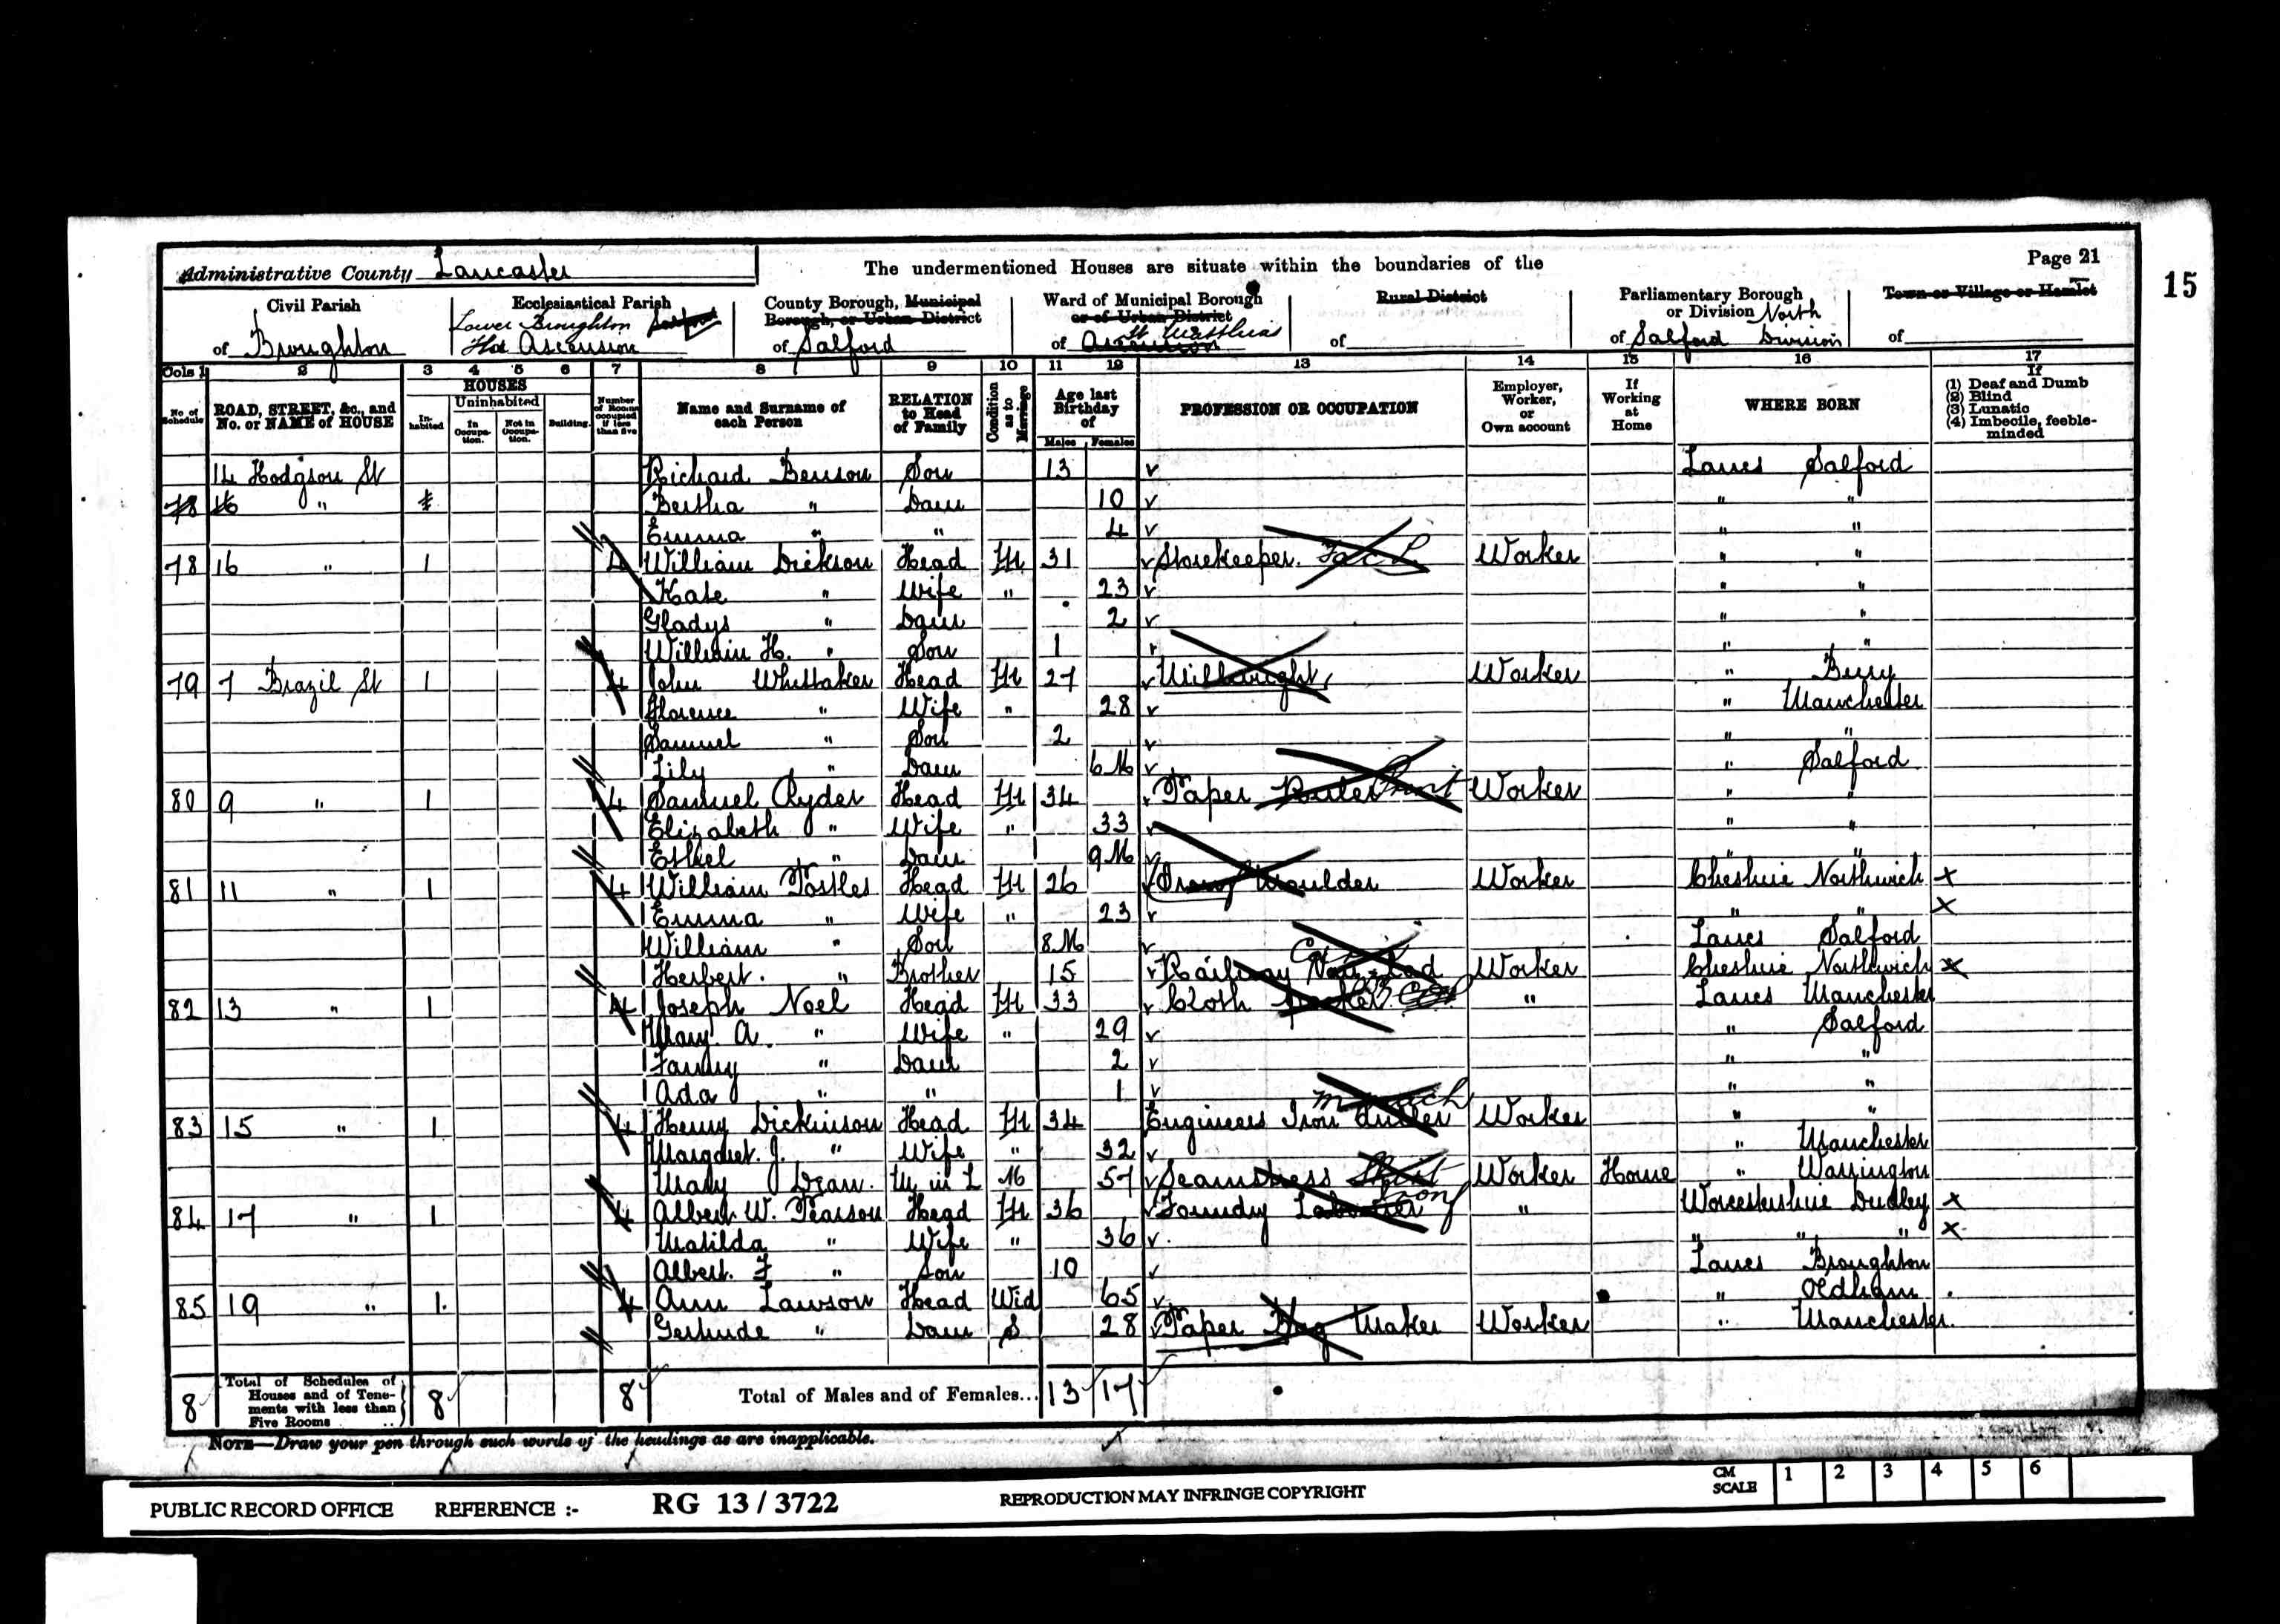 Administrative County Lancaster
The undermentioned Houses are situate within the boundaries of the
Page 21
15
Civil Parish
of Broughton
Ecclesiastical Parish
Lower Broughton
Ascension
County Borough, Municipal
Borough, or Urban District
of Salford
Ward of Municipal Borough
or of Urban District
of Ascension St Matthias
Rural District
of
Parliamentary Borough
or Division North
of Salford Division
Town or Village or Hamlet
of
Cols 1 2 3 4 5 6 7 8 9 10 11 12 13 14 15 16 17
No of Schedule
ROAD, STREET, &c., and No. or NAME of HOUSE
HOUSES
In-habited
Uninhabited
In Occupa-tion.
Not in Occupa-tion.
Building.
Number of Rooms occupied if less than five
Name and Surname of each Person
RELATION to Head of Family
Condition as to Marriage
Age last Birthday of
Males Females
PROFESSION OR OCCUPATION
Employer, Worker, or Own account
If Working at Home
WHERE BORN
If
(1) Deaf and Dumb
(2) Blind
(3) Lunatic
(4) Imbecile, feeble-minded
14 Hodgson St Richard Benson Son 13 Lancs Salford
78 16 " 1 Bertha " Daur 10 " "
Emma " " 4 " "
78 16 " 1 4 William Dickson Head M 31 Storekeeper Worker " "
Kate " Wife " 23 " "
Gladys " Daur 2 " "
William H. " Son 1 " "
79 7 Brazil St 1 4 John Whittaker Head M 27 Millwright Worker " Bury
Florence " Wife " 28 " Manchester
Samuel " Son 2 " "
Lily " Daur 6 M " Salford
80 9 " 1 4 Samuel Ryder Head M 34 Paper Ruler Print Worker " "
Elizabeth " Wife " 33 " "
Ethel " Daur 9 M " "
81 11 " 1 4 William Postles Head M 26 Iron Moulder Worker Cheshire Northwich x
Emma " Wife " 23 " " x
William " Son 8 M Lancs Salford
Herbert. " Brother 15 Railway Lad Worker Cheshire Northwich x
82 13 " 1 4 Joseph Noel Head M 33 Cloth Packer " Lancs Manchester
Mary A. " Wife " 29 " Salford
Fanny " Daur 2 " "
Ada " " 1 " "
83 15 " 1 4 Henry Dickinson Head M 34 Engineers Iron Worker " "
Margaret. J. " Wife " 32 " Manchester
Mary Dean. M in L M 57 Seamstress Shirt Worker Home " Warrington
84 17 " 1 4 Albert W. Pearson Head M 36 Foundry Labourer Iron " Worcestershire Dudley x
Matilda " Wife " 36 " " " x
Albert. F " Son 10 Lancs Broughton
85 19 " 1 4 Ann Lawson Head Wid 65 " Oldham
Gertrude " Daur S 28 Paper Bag Maker Worker " Manchester
8 Total of Schedules of Houses and of Tene-ments with less than Five Rooms 8 8 Total of Males and of Females... 13 17
NOTE—Draw your pen through such words of the headings as are inapplicable.
PUBLIC RECORD OFFICE REFERENCE :- RG 13 / 3722 REPRODUCTION MAY INFRINGE COPYRIGHT CM SCALE 1 2 3 4 5 6